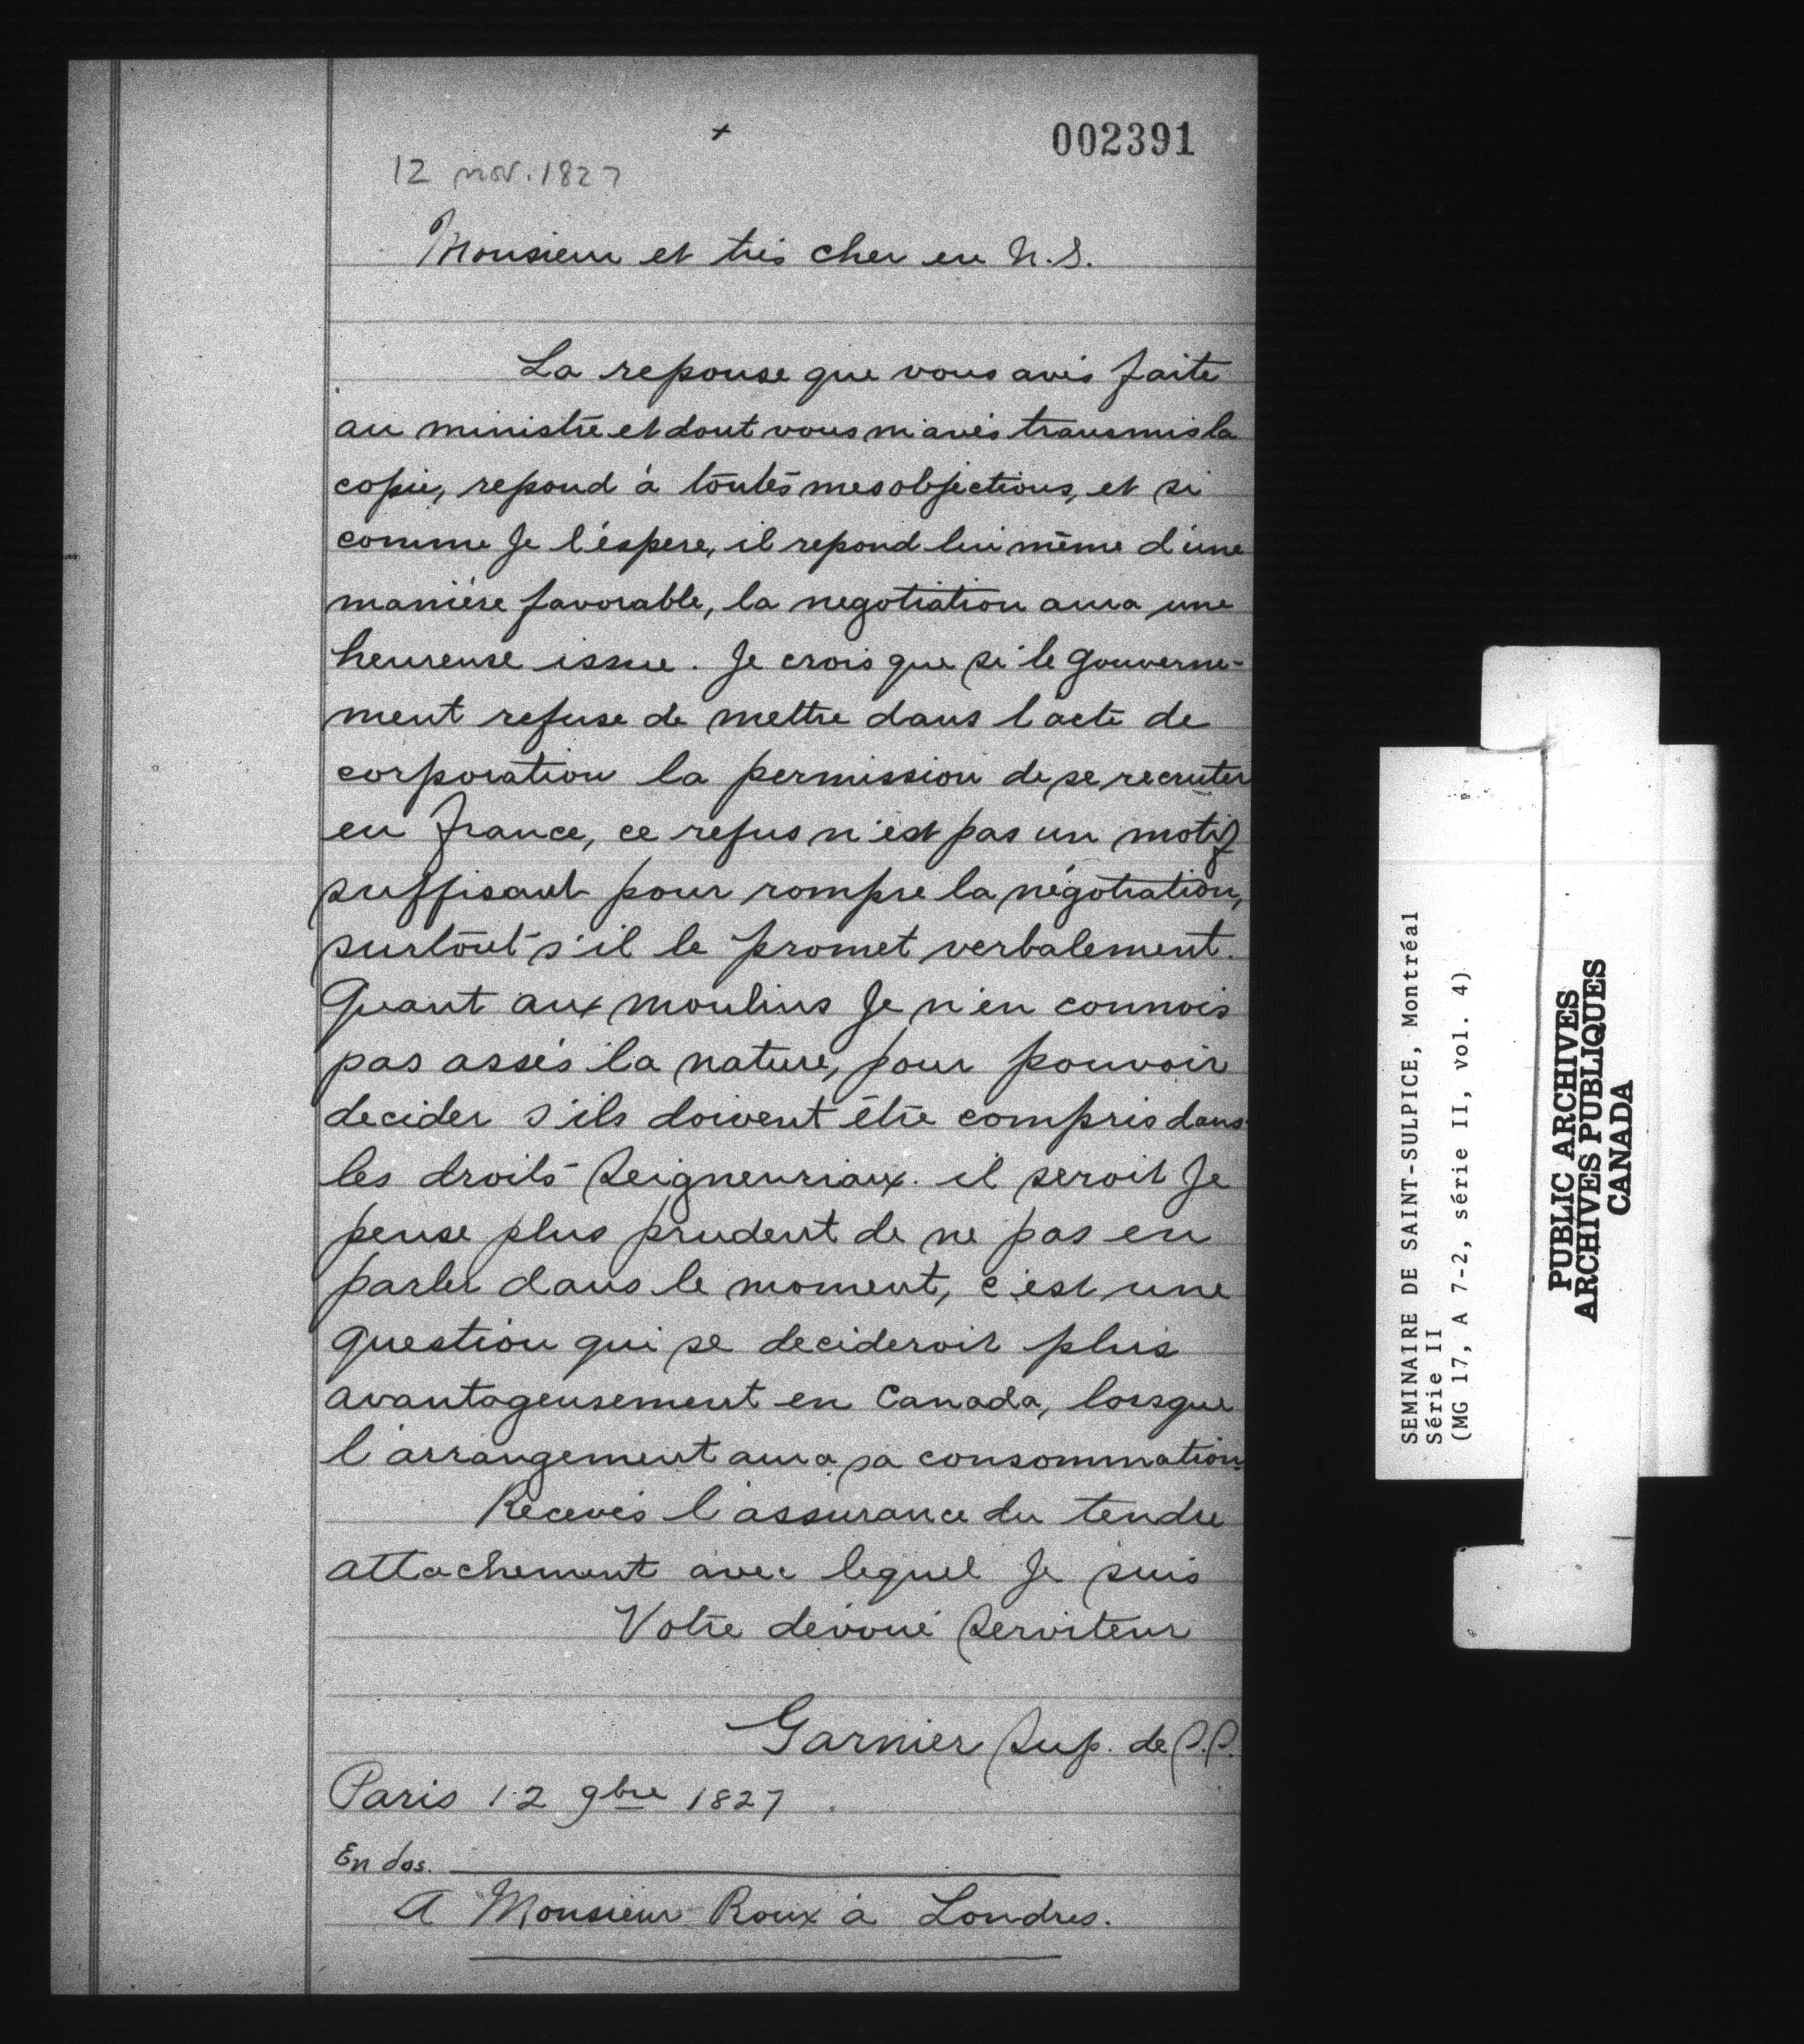 +
002391
12 nov. 1827
Monsieur et très cher en N.S.
La reponse que vous avés faite
au ministre et dont vous m'avés transmis la
copie, repond à toutes mes objections, et si
comme Je l'éspere, il repond lui même d'une
maniére favorable, la negotiation aura une
heureuse issue. Je crois que si le gouverne-
ment refuse de mettre dans l'acte de
corporation la permission de se recruter
en france, ce refus n'est pas un motif
suffisant pour rompre la négotiation,
surtout s'il le promet verbalement.
Quant aux moulins Je n'en connois
pas assés la nature, pour pouvoir
decider s'ils doivent être compris dans
les droits Seigneuriaux. il seroit Je
pense plus prudent de ne pas en
parler dans le moment, c'est une
question qui se decideroit plus
avantageusement en Canada, lorsque
l'arrangement aura sa consommation.
Recevés l'assurance du tendre
attachement avec lequel Je suis
Votre dévoué Serviteur
Garnier Sup. de S.S.
Paris 12 9bre 1827.
En dos.
A Monsieur Roux à Londres.
SEMINAIRE DE SAINT-SULPICE, Montréal
Série II
(MG 17, A 7-2, série II, vol. 4)
PUBLIC ARCHIVES
ARCHIVES PUBLIQUES
CANADA